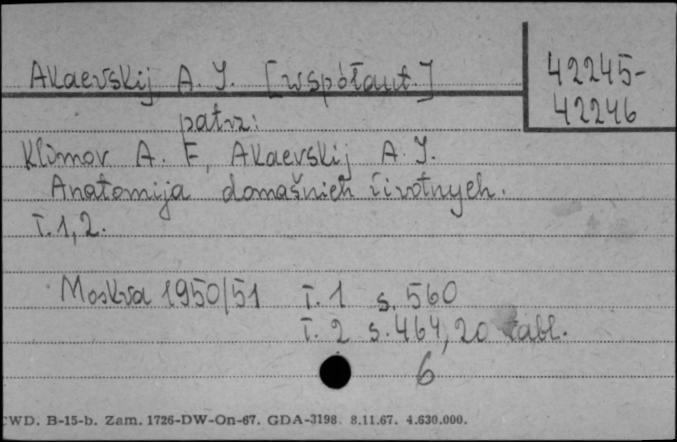 Akaevskij A. I. [współaut.]
42245-
42246
patrz:
Klimov A. F., Akaevskij A. I.
Anatomija domašnich životnych.
T. 1, 2.
Moskva 1950/51 T. 1 s. 560
T. 2 s. 464, 20 tabl.
6
CWD. B-15-b. Zam. 1726-DW-On-67. GDA-3198. 8.11.67. 4.630.000.